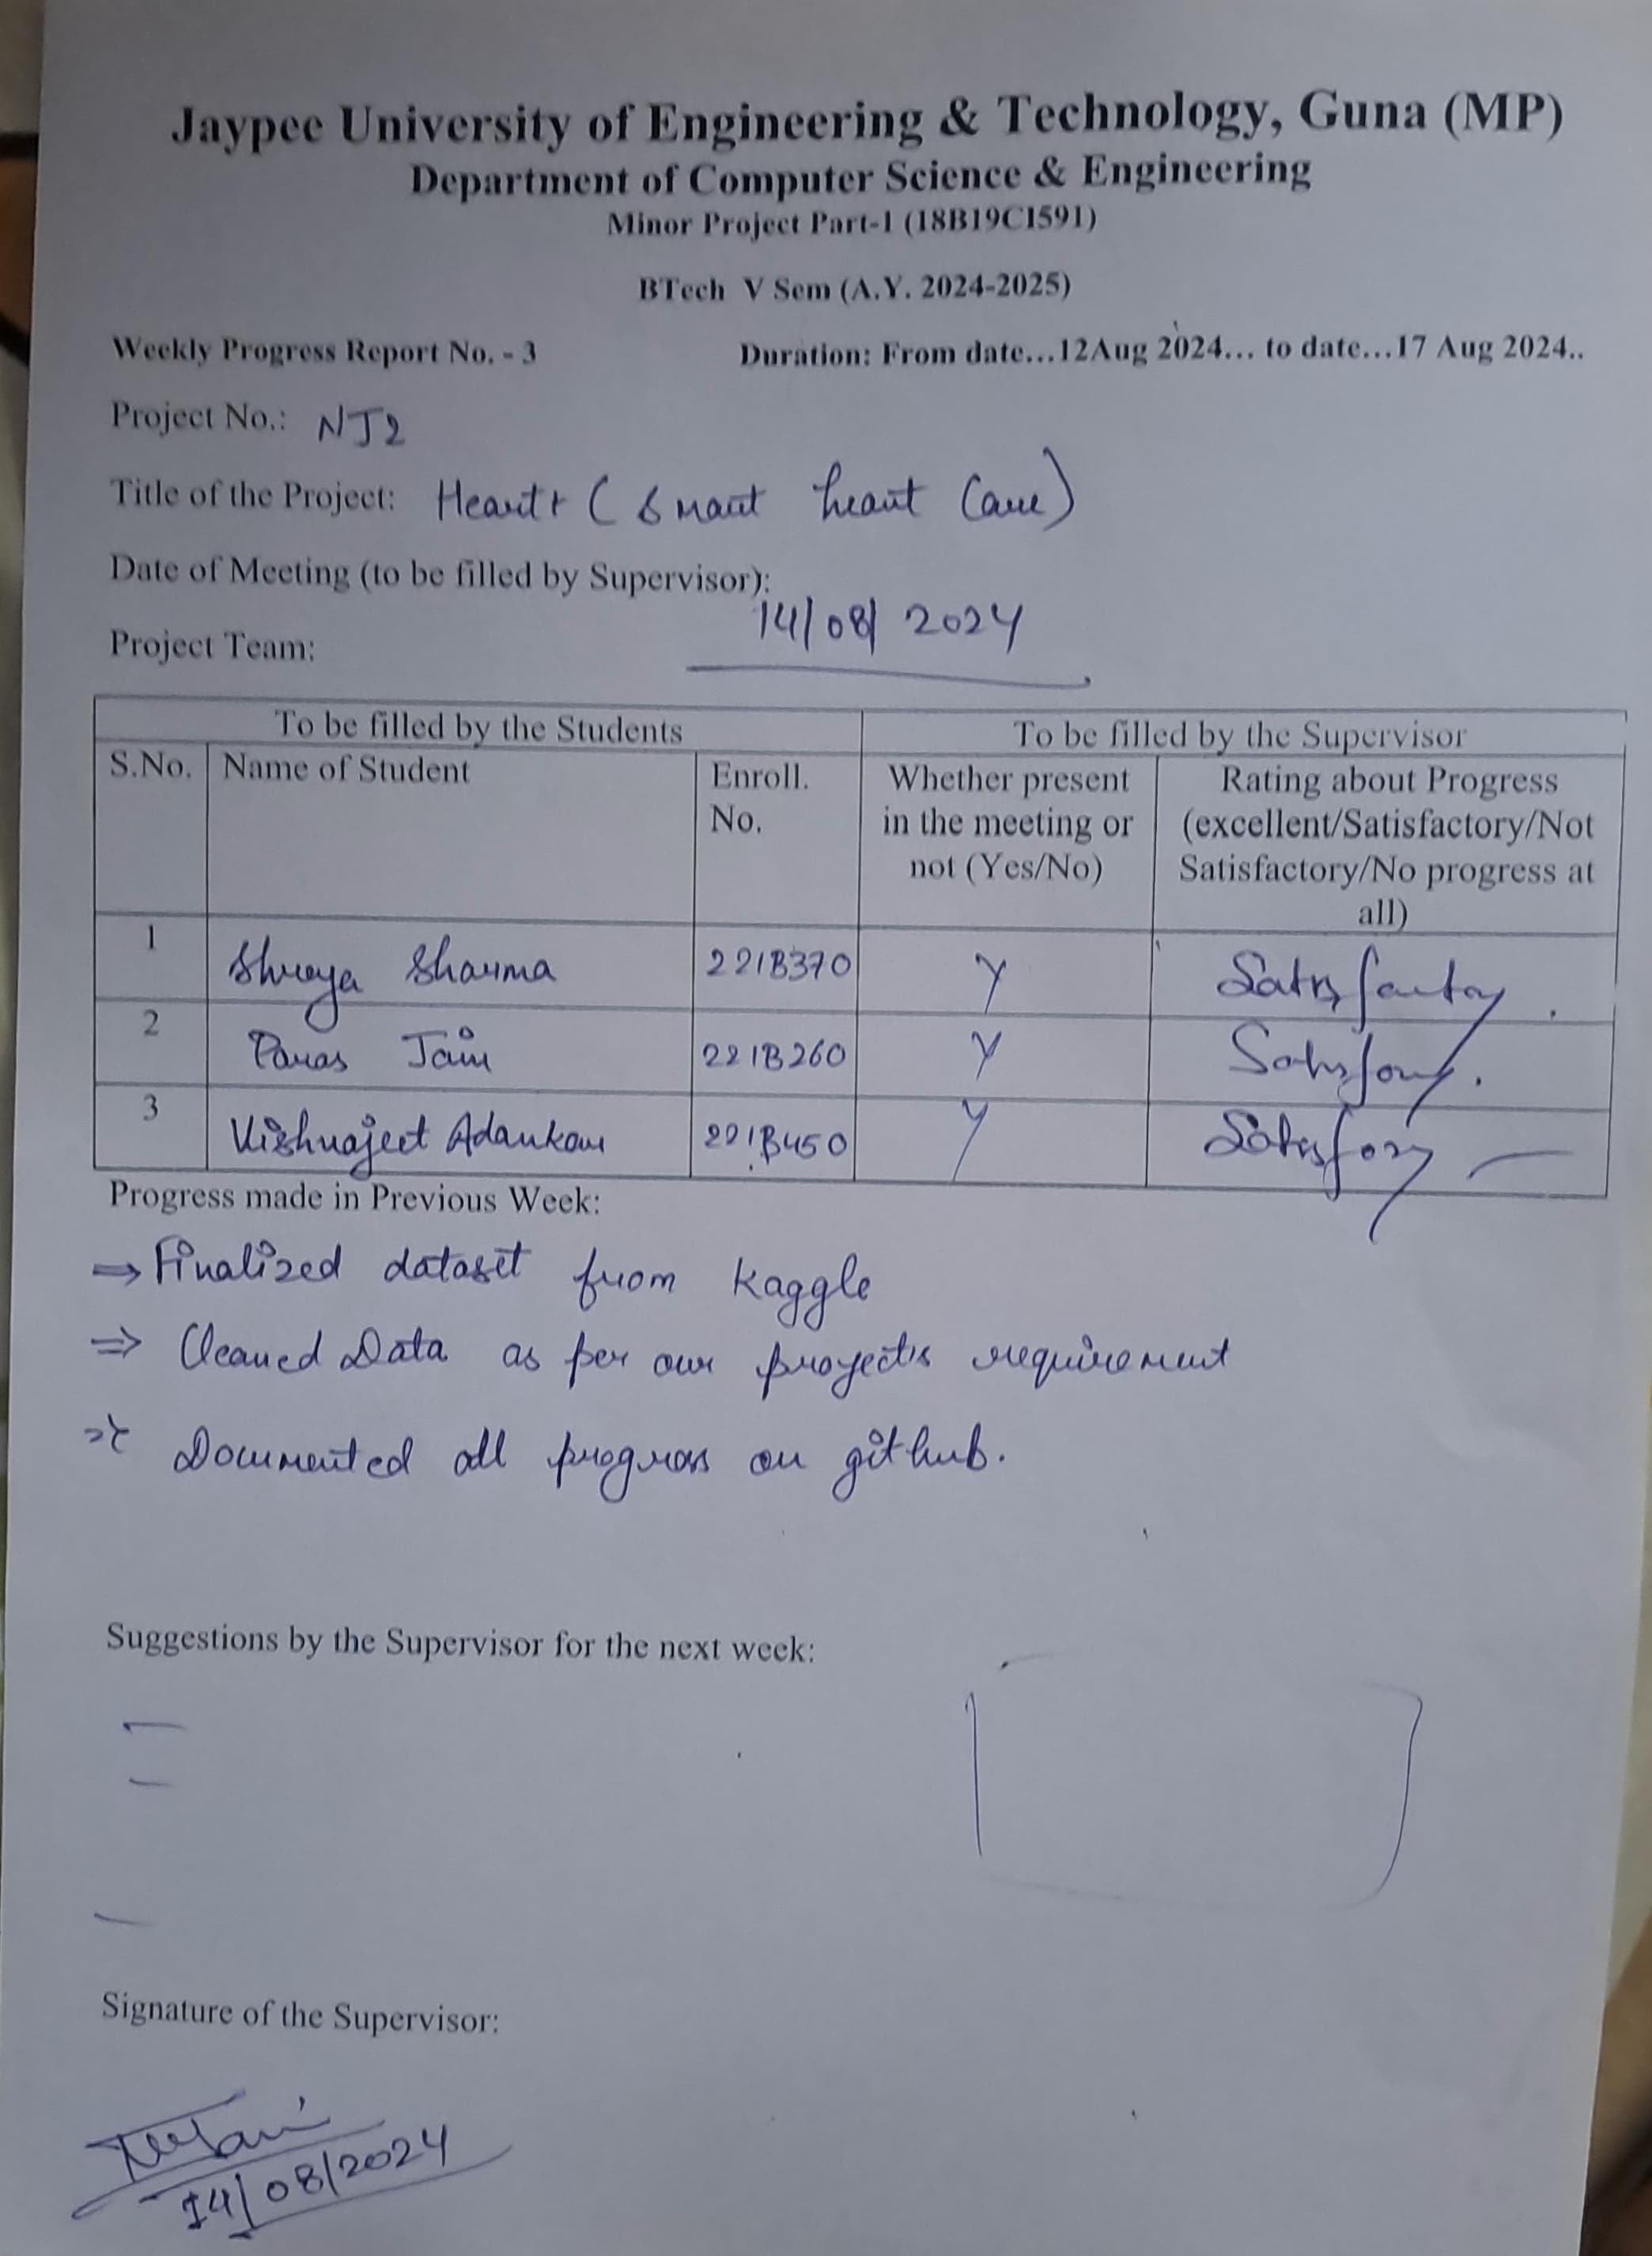 Jaypee University of Engineering & Technology, Guna (MP)
Department of Computer Science & Engineering
Minor Project Part-1 (18B19CI591)
BTech V Sem (A.Y. 2024-2025)
Weekly Progress Report No. - 3 Duration: From date...12Aug 2024... to date...17 Aug 2024..
Project No.: NJ2
Title of the Project: Heart+ (Smart heart Care)
Date of Meeting (to be filled by Supervisor):
14/08/2024
Project Team:
To be filled by the Students To be filled by the Supervisor
S.No. Name of Student Enroll. No. Whether present in the meeting or not (Yes/No) Rating about Progress (excellent/Satisfactory/Not Satisfactory/No progress at all)
1 Shreya Sharma 221B370 Y Satisfactory
2 Paras Jain 221B260 Y Satisfactory
3 Vishwajeet 221B450 Y Satisfactory
Progress made in Previous Week:
⇒ Finalized dataset from Kaggle
⇒ Cleaned Data as per our project's requirement
⇒ Documented all progress on github.
Suggestions by the Supervisor for the next week:
Signature of the Supervisor:
14/08/2024